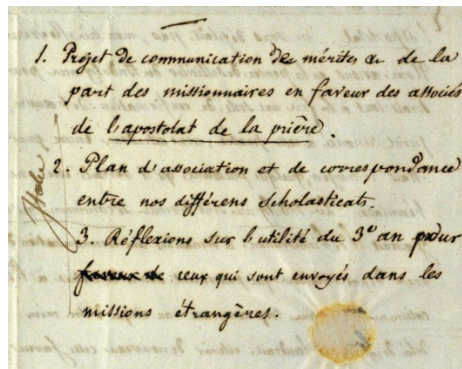 1. Projet de communication des mérites de la
part des missionnaires en faveur des associés
de l'apostolat de la prière.
2. Plan d'association et de correspondance
entre nos différens scholasticats.
3. Réflexions sur l'utilité du 3e an pour
ceux qui sont envoyés dans les
missions étrangères.